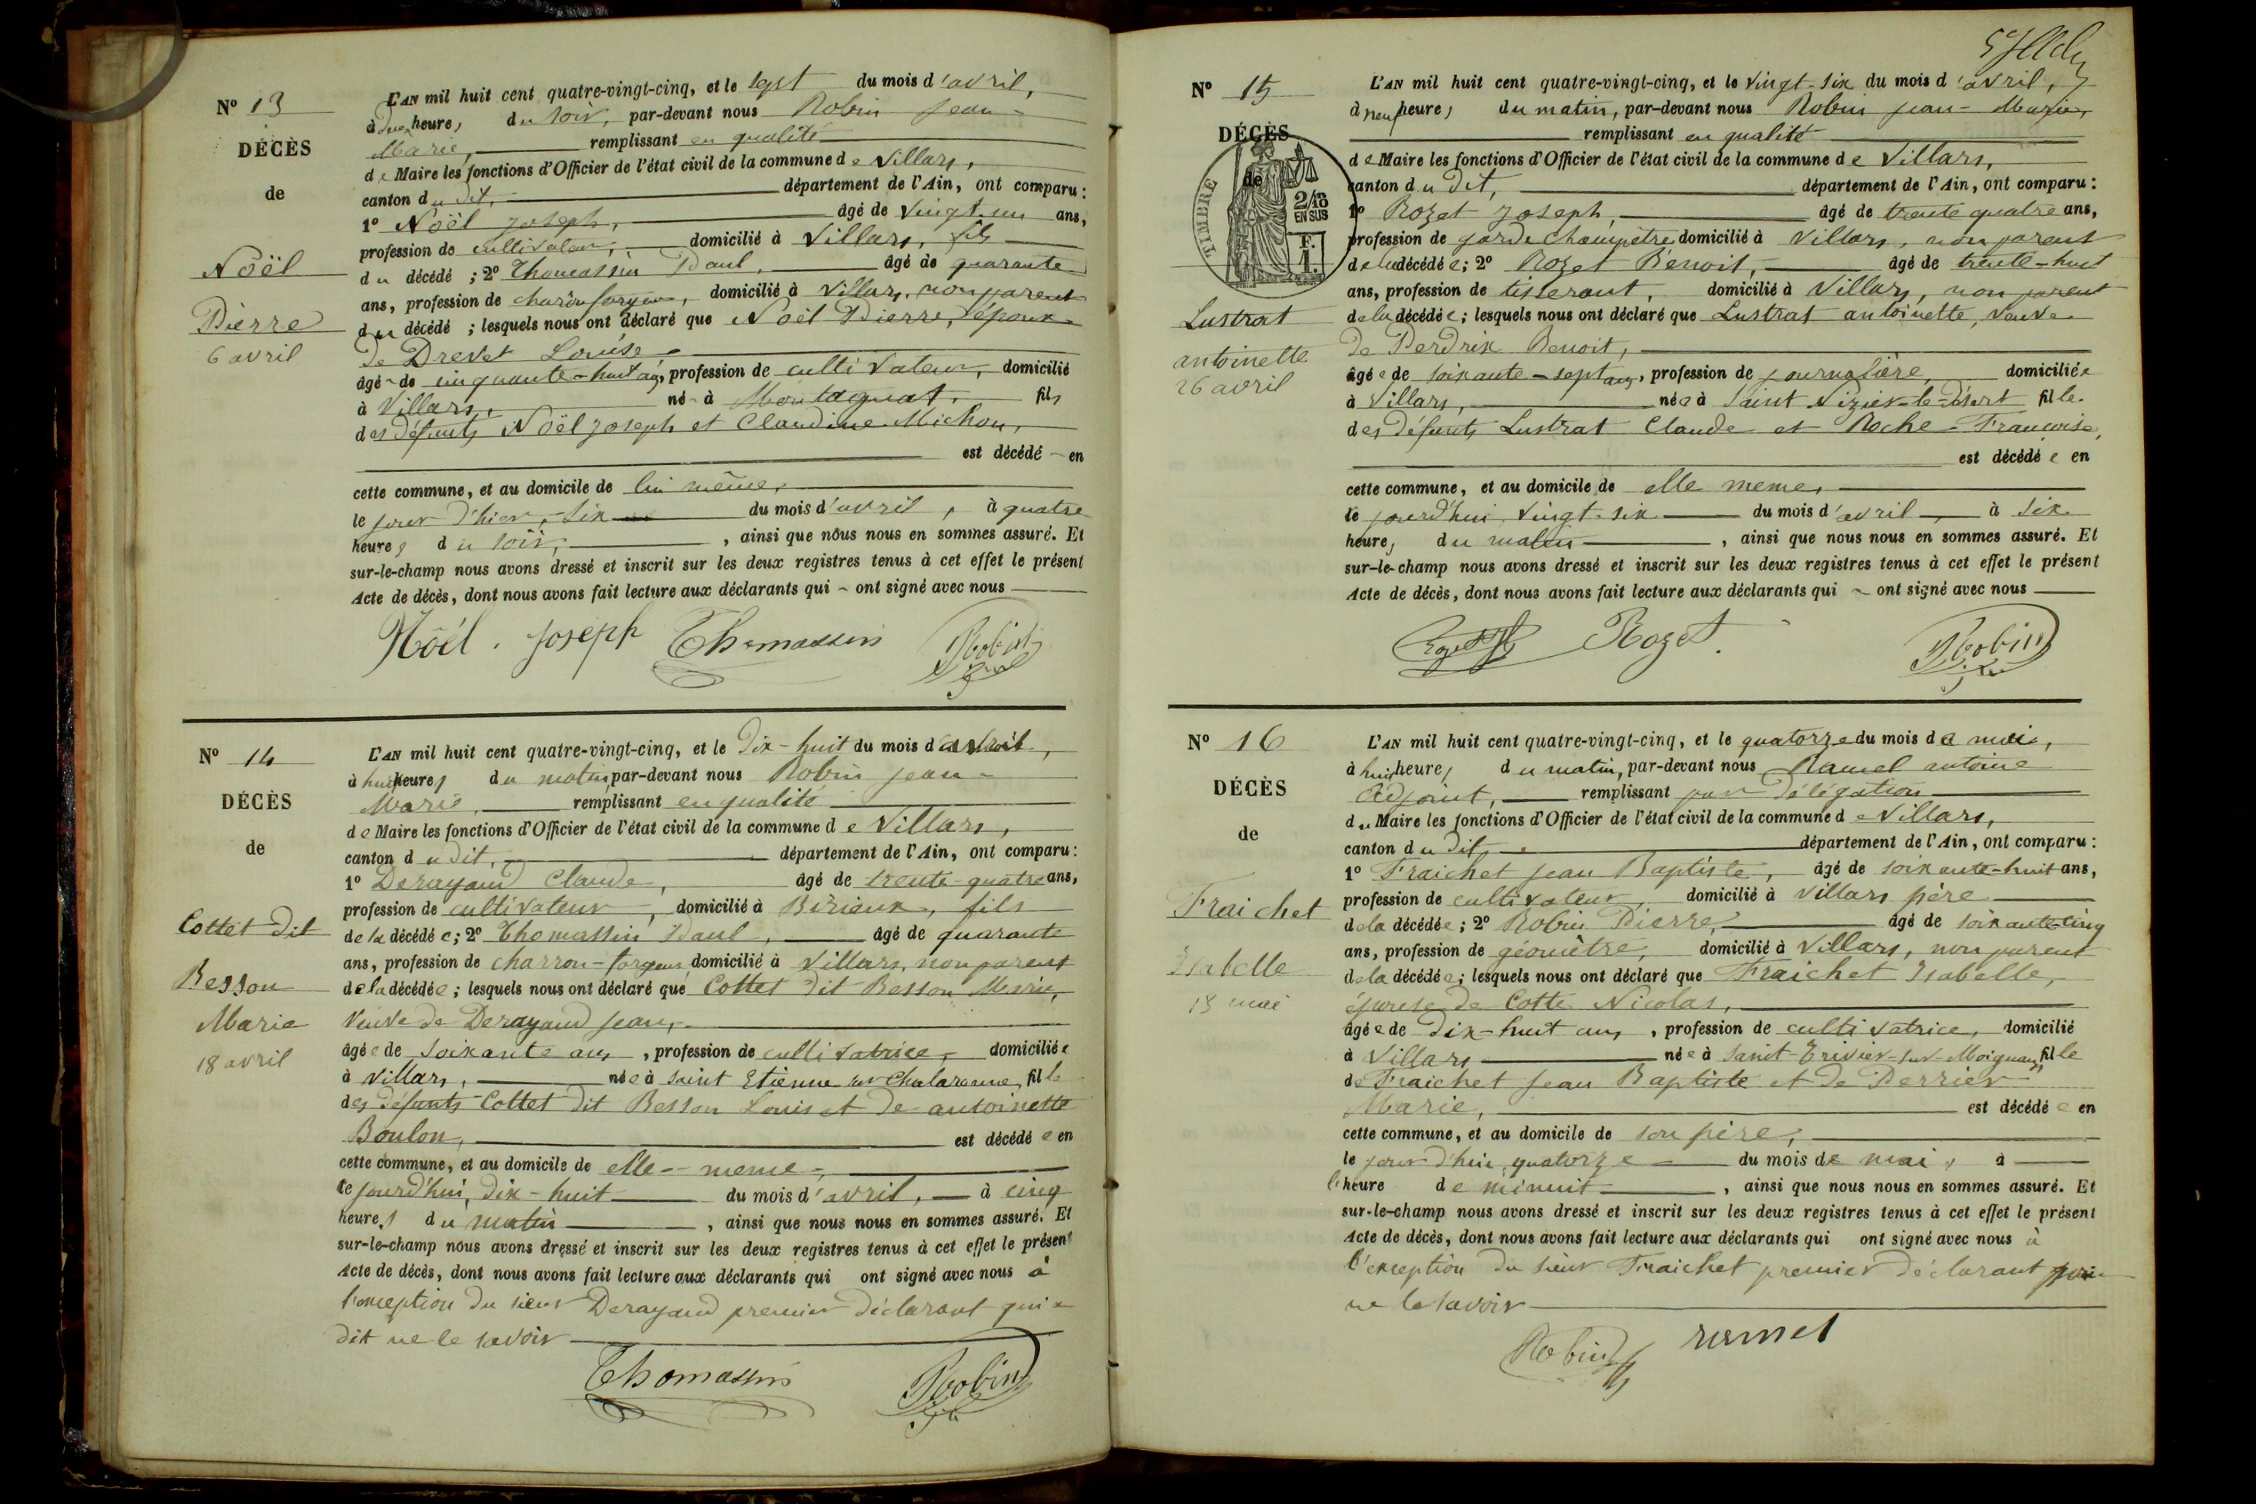 Nº 13
DÉCÈS
de
Noël
Pierre
6 avril
L'AN mil huit cent quatre-vingt-cinq, et le sept du mois d'avril,
à deux heures du soir, par-devant nous Robin Jean-
Marie, remplissant en qualité
de Maire les fonctions d'Officier de l'état civil de la commune de Villars,
canton du dit, département de l'Ain, ont comparu :
1º Noël Joseph, âgé de vingt-un ans,
profession de cultivateur, domicilié à Villars, fils
du décédé ; 2º Thomassin Paul, âgé de quarante
ans, profession de charron forgeur, domicilié à Villars, non parent
du décédé ; lesquels nous ont déclaré que Noël Pierre, époux
de Drevet Louise
âgé de cinquante-huit ans, profession de cultivateur, domicilié
à Villars, né à Montagnat, fils
des défunts Noël Joseph et Claudine Michon,
est décédé en
cette commune, et au domicile de lui même,
le jour d'hier, six du mois d'avril, à quatre
heures du soir, ainsi que nous nous en sommes assuré. Et
sur-le-champ nous avons dressé et inscrit sur les deux registres tenus à cet effet le présent
Acte de décès, dont nous avons fait lecture aux déclarants qui ont signé avec nous
Nôél Joseph Thomassin Robin
Nº 14
DÉCÈS
de
Cottet dit
Besson
Marie
18 avril
L'AN mil huit cent quatre-vingt-cinq, et le dix-huit du mois d'avril,
à huit heures du matin par-devant nous Robin Jean-
Marie, remplissant en qualité
de Maire les fonctions d'Officier de l'état civil de la commune de Villars,
canton du dit, département de l'Ain, ont comparu :
1º Derayaud Claude, âgé de trente-quatre ans,
profession de cultivateur, domicilié à Birieux, fils
de la décédée ; 2º Thomassin Paul, âgé de quarante
ans, profession de charron-forgeur, domicilié à Villars, non parent
de la décédée ; lesquels nous ont déclaré que Cottet dit Besson Marie,
veuve de Derayaud Jean,
âgée de soixante ans, profession de cultivatrice, domiciliée
à Villars, née à Saint Etienne sur Chalaronne, fille
des défunts Cottet dit Besson Louis et de antoinette
Boulon, est décédée en
cette commune, et au domicile de elle-meme,
le jourd'hui, dix-huit du mois d'avril, à cinq
heures du matin, ainsi que nous nous en sommes assuré. Et
sur-le-champ nous avons dressé et inscrit sur les deux registres tenus à cet effet le présent
Acte de décès, dont nous avons fait lecture aux déclarants qui ont signé avec nous à
l'exception du sieur Derayaud premier déclarant qui a
dit ne le savoir
Thomassin Robin
Nº 15
DÉCÈS
de
TIMBRE
2/10
EN SUS
F.
1.
Lustrat
antoinette
26 avril
L'AN mil huit cent quatre-vingt-cinq, et le vingt-six du mois d'avril,
à neuf heures du matin, par-devant nous Robin Jean-Marie,
remplissant en qualité
de Maire les fonctions d'Officier de l'état civil de la commune de Villars,
canton du dit, département de l'Ain, ont comparu :
1º Rozet Joseph, âgé de trente quatre ans,
profession de garde champêtre domicilié à Villars, non parent
de la décédée ; 2º Rozet Benoit, âgé de trente-huit
ans, profession de tisserant, domicilié à Villars, non parent
de la décédée ; lesquels nous ont déclaré que Lustrat antoinette, veuve
de Perdrix Benoit,
âgée de soixante-sept ans, profession de journalière, domiciliée
à Villars, née à Saint Nizier-le-Désert fille
des défunts Lustrat Claude et Roche Françoise,
est décédée en
cette commune, et au domicile de elle meme,
le jourd'hui vingt-six du mois d'avril, à six
heures du matin, ainsi que nous nous en sommes assuré. Et
sur-le-champ nous avons dressé et inscrit sur les deux registres tenus à cet effet le présent
Acte de décès, dont nous avons fait lecture aux déclarants qui ont signé avec nous
Rozet Rozet Robin
Nº 16
DÉCÈS
de
Fraichet
Isabelle
L'AN mil huit cent quatre-vingt-cinq, et le quatorze du mois de mai,
à huit heures du matin, par-devant nous Ramel antoine
Adjoint, remplissant par délégation
du Maire les fonctions d'Officier de l'état civil de la commune de Villars,
canton du dit, département de l'Ain, ont comparu :
1º Fraichet Jean Baptiste, âgé de soixante-huit ans,
profession de cultivateur, domicilié à Villars père
de la décédée ; 2º Robin Pierre, âgé de soixante-cinq
ans, profession de géomètre, domicilié à Villars, non parent
de la décédée ; lesquels nous ont déclaré que Fraichet Isabelle,
épouse de Cotte Nicolas,
âgée de dix-huit ans, profession de cultivatrice, domicilié
à Villars née à Saint-Trivier-sur-Moignans, fille
de Fraichet Jean Baptiste et de Perrier
Marie, est décédée en
cette commune, et au domicile de son père,
le jour d'hui quatorze du mois de mai, à
l'heure de minuit, ainsi que nous nous en sommes assuré. Et
sur-le-champ nous avons dressé et inscrit sur les deux registres tenus à cet effet le présent
Acte de décès, dont nous avons fait lecture aux déclarants qui ont signé avec nous à
l'exception du sieur Fraichet premier déclarant
ne le savoir
Robin ramel